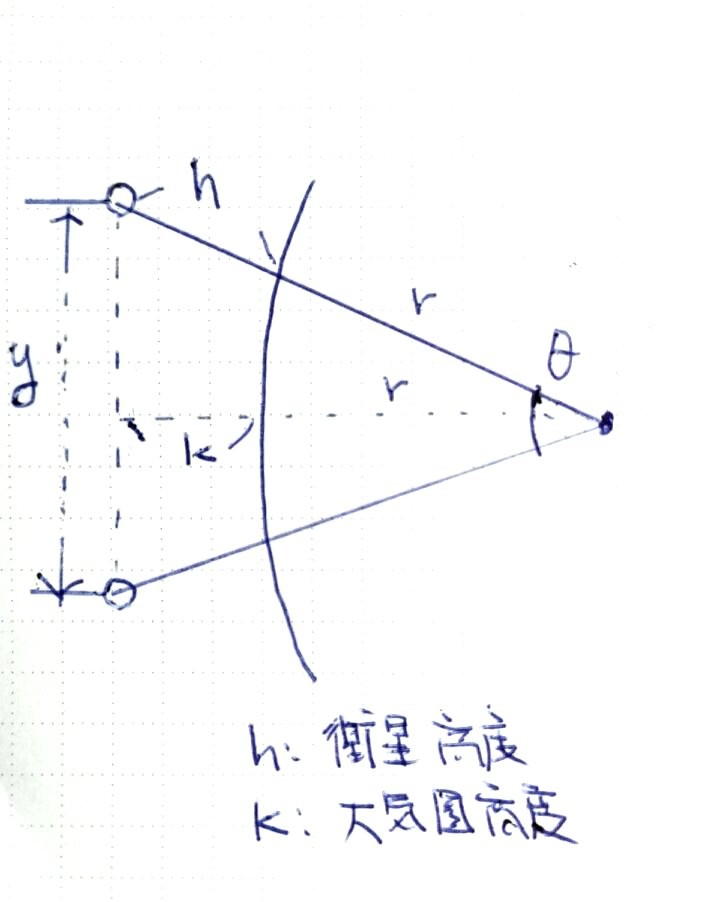 h
r
θ
r
y
k
h: 衛星高度
k: 大気圏高度